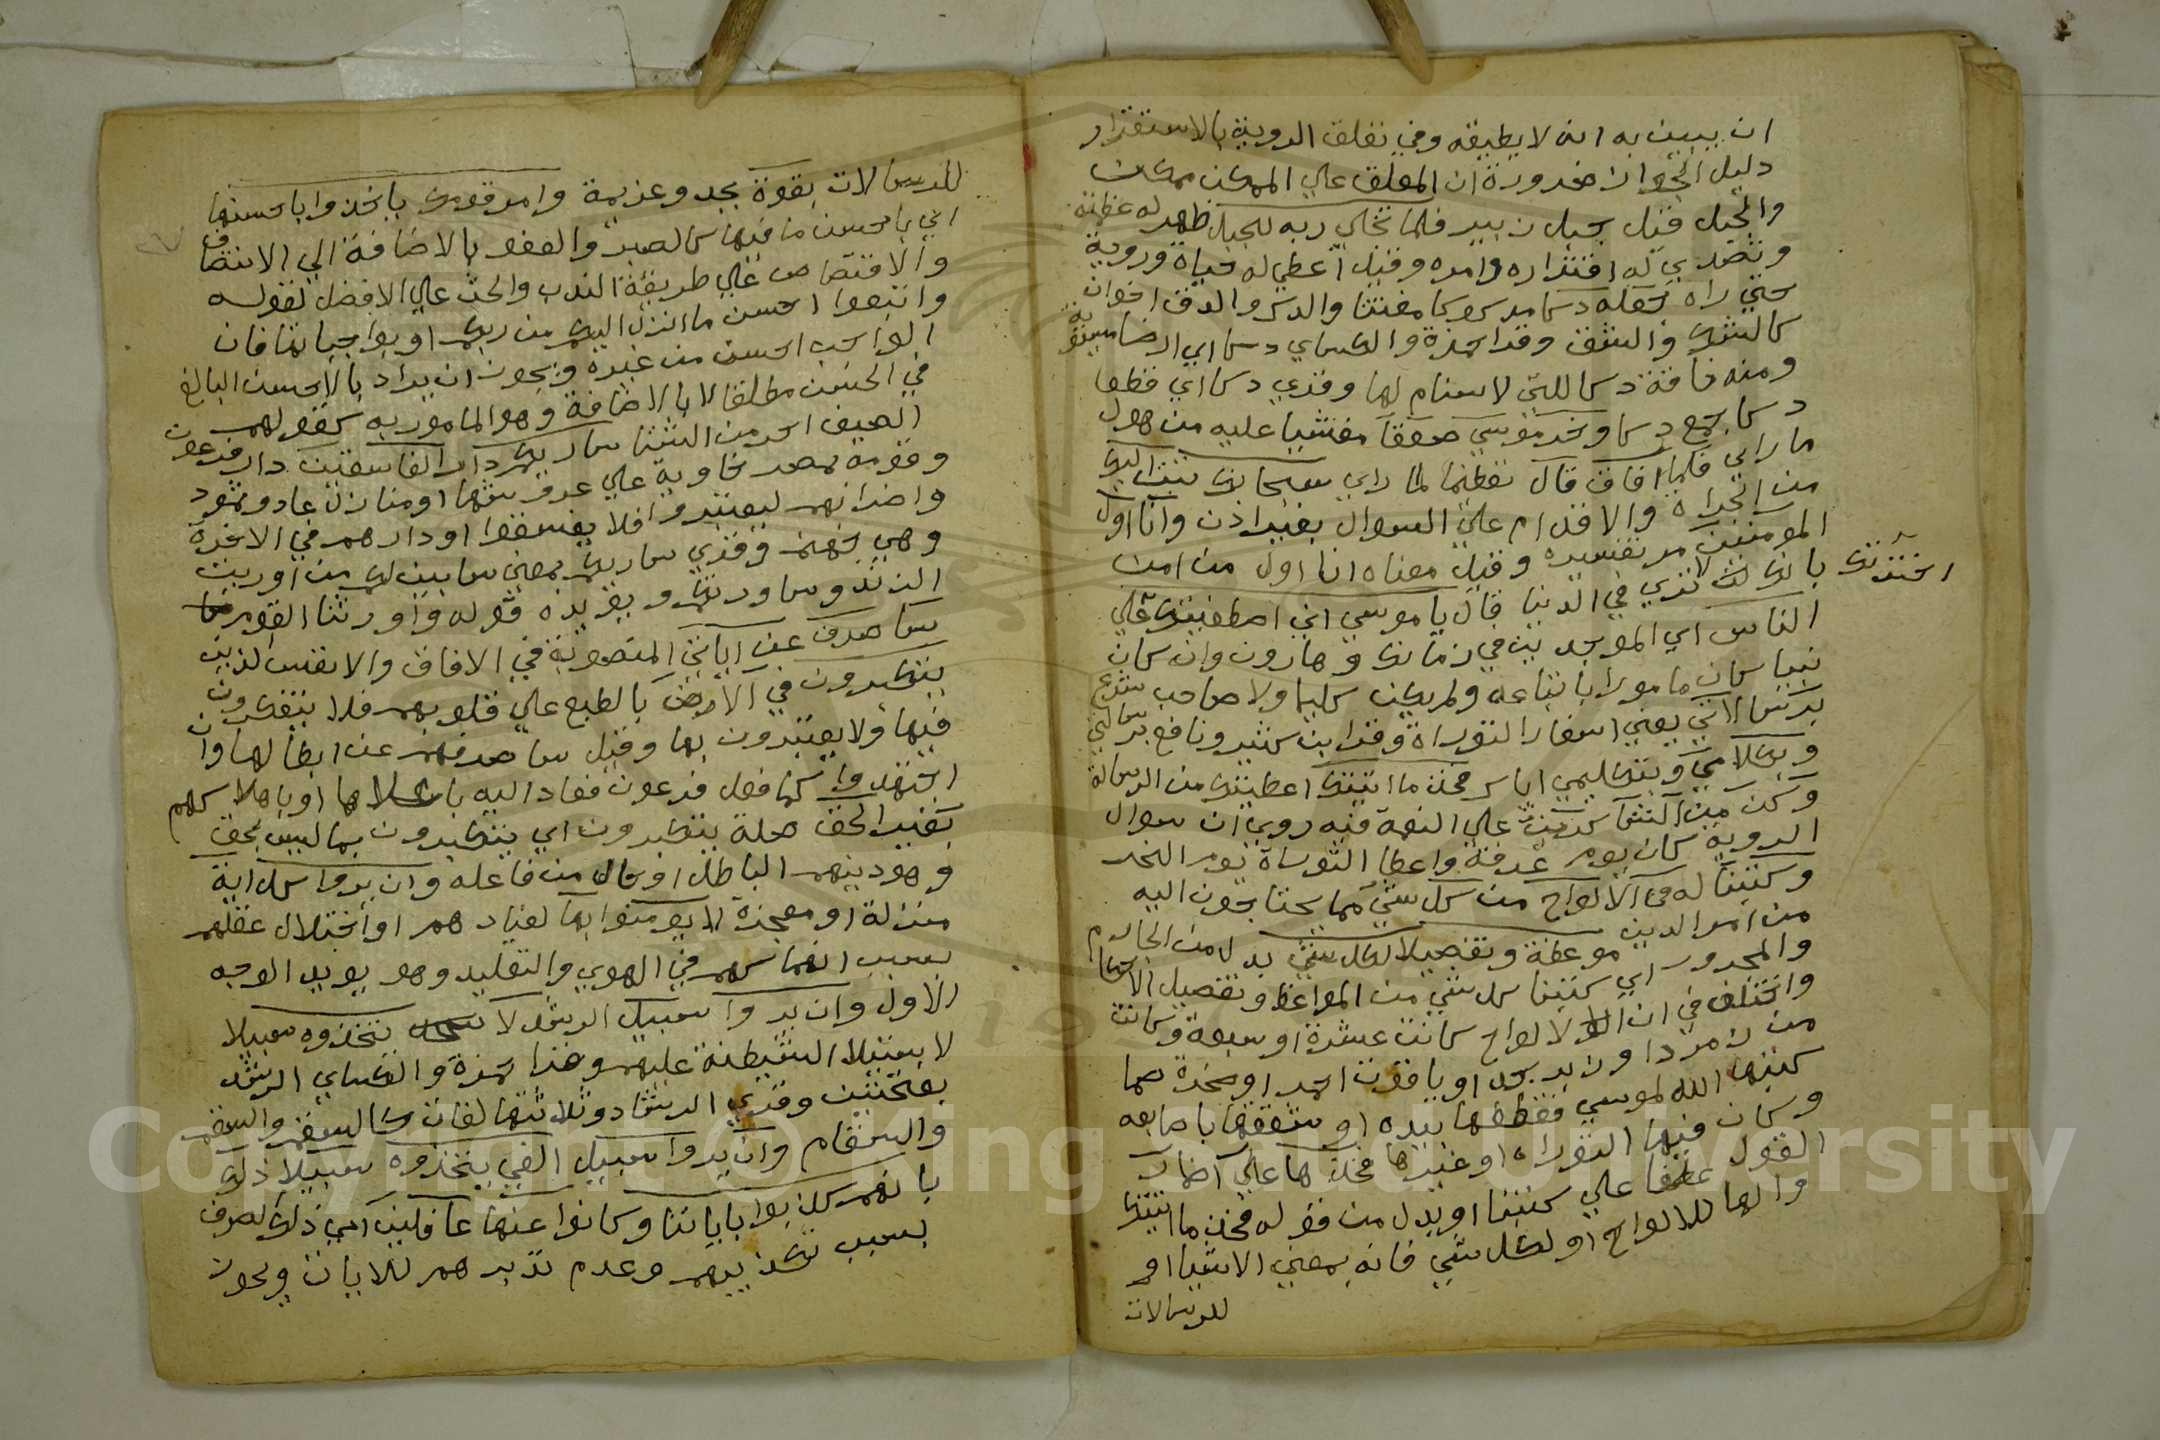 ان يبين به انه لا يطيقه وفي تعلق الروية بالاستقرار
دليل الجواز ضرورة ان المعلق علي الممكن ممكن
والجبل قيل جبل زبير فلما تجلي ربه للجبل ظهر له عظمته
وتصدي له اقتداره وامره وقيل اعطي له حياة وروية
حتي راه جعله دكا مدكوكا مفتتا والدك والدق اخوان
كالشك والشق وقرا حمزة والكساي دكا اي ارضا مستوية
ومنه ناقة دكا للتي لا سنام لها وقري دكا اي قطعا
دكا جمع دكا وخر موسي صعقا مغشيا عليه من هول
ما راي فلما افاق قال تعظيما لما راي سبحانك تبت اليك
من الجراة والاقدام علي السوال بغير اذن وانا اول
المومنين مر تفسيره وقيل معناه انا اول من امن
بانك لا تري في الدنيا قال يا موسي اني اصطفيتك علي
اخترتك
الناس اي الموجودين في زمانك وهارون وان كان
نبيا كان مامورا باتباعه ولم يكن كليما ولا صاحب شرع
برسالاتي يعني اسفار التوراة وقرا ابن كثير ونافع برسالتي
وبكلامي وبتكليمي اياك فخذ ما اتيتك اعطيتك من الرسالة
وكن من الشاكرين علي النعمة فيه روي ان سوال
الروية كان يوم عرفة واعطا التوراة يوم النحر
وكتبنا له في الالواح من كل شي مما يحتاجون اليه
من امر الدين موعظة وتفصيلا لكل شي بدل من الجار
والمجرور اي كتبنا كل شي من المواعظ وتفصيل الاحكام
واختلف في ان الالواح كانت عشرة او سبعة وكانت
من زمردا وزبرجد او ياقوت احمر او صخرة صما
كتبها الله لموسي فقطعها بيده او شققها باصابعه
وكان فيها التوراة او غيرها فخذها علي اضمار
القول عطفا علي كتبنا او بدل من قوله فخذ ما اتيتك
والها للالواح او لكل شي فانه بمعني الاشيا او
للرسالات
للرسالات بقوة بجد وعزيمة وامر قومك ياخذوا باحسنها
اي باحسن ما فيها كالصبر والعفو بالاضافة الي الانتصار
والاقتصاص علي طريقة الندب والحث علي الافضل لقوله
واتبعوا احسن ما انزل اليكم من ربكم او بواجباتها فان
الواجب احسن من غيره ويجوز ان يراد بالاحسن البالغ
في الحسن مطلقا لا بالاضافة وهو المامور به كقولهم
الصيف احر من الشتا ساريكم دار الفاسقين دار فرعون
وقومه بمصر خاوية علي عروشها او منازل عاد وثمود
واضرابهم ليعتبروا فلا يفسقوا او دارهم في الاخرة
وهي جهنم وقري ساريكم بمعني سابين لكم من اوريت
الزند وساورثكم ويويده قوله واورثنا القوم
ساصرف عن اياتي المنصوبة في الافاق والانفس الذين
يتكبرون في الارض بالطبع علي قلوبهم فلا يتفكرون
فيها ولا يعتبرون بها وقيل ساصرفهم عن ابطالها وان
اجتهدوا كما فعل فرعون فعاد اليه باعلاها او باهلاكهم
بغير الحق صلة يتكبرون اي يتكبرون بما ليس بحق
وهو دينهم الباطل او حال من فاعله وان يروا كل اية
منزلة او معجزة لا يومنوا بها لعنادهم او اختلال عقلهم
بسبب انهماكهم في الهوي والتقليد وهو يويد الوجه
الاول وان يروا سبيل الرشد لا يتخذوه سبيلا
لاستيلا الشيطنة عليهم وقرا حمزة والكساي الرشد
بفتحتين وقري الرشاد وثلاثتها لغات كالسقم والسقم
والسقام وان يروا سبيل الغي يتخذوه سبيلا ذلك
بانهم كذبوا باياتنا وكانوا عنها غافلين اي ذلك الصرف
بسبب تكذيبهم وعدم تدبرهم للايات ويجوز
Copyright © King Saud University